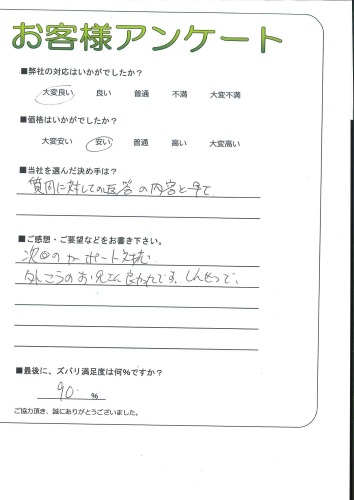 お客様アンケート
■弊社の対応はいかがでしたか?
大変良い 良い 普通 不満 大変不満
■価格はいかがでしたか?
大変安い 安い 普通 高い 大変高い
■当社を選んだ決め手は?
質問に対しての返答の内容と早さ
■ご感想・ご要望などをお書き下さい。
次回のカーポート
外こうのお兄さん良かったです。しんせつで、
■最後に、ズバリ満足度は何%ですか?
90 %
ご協力頂き、誠にありがとうございました。